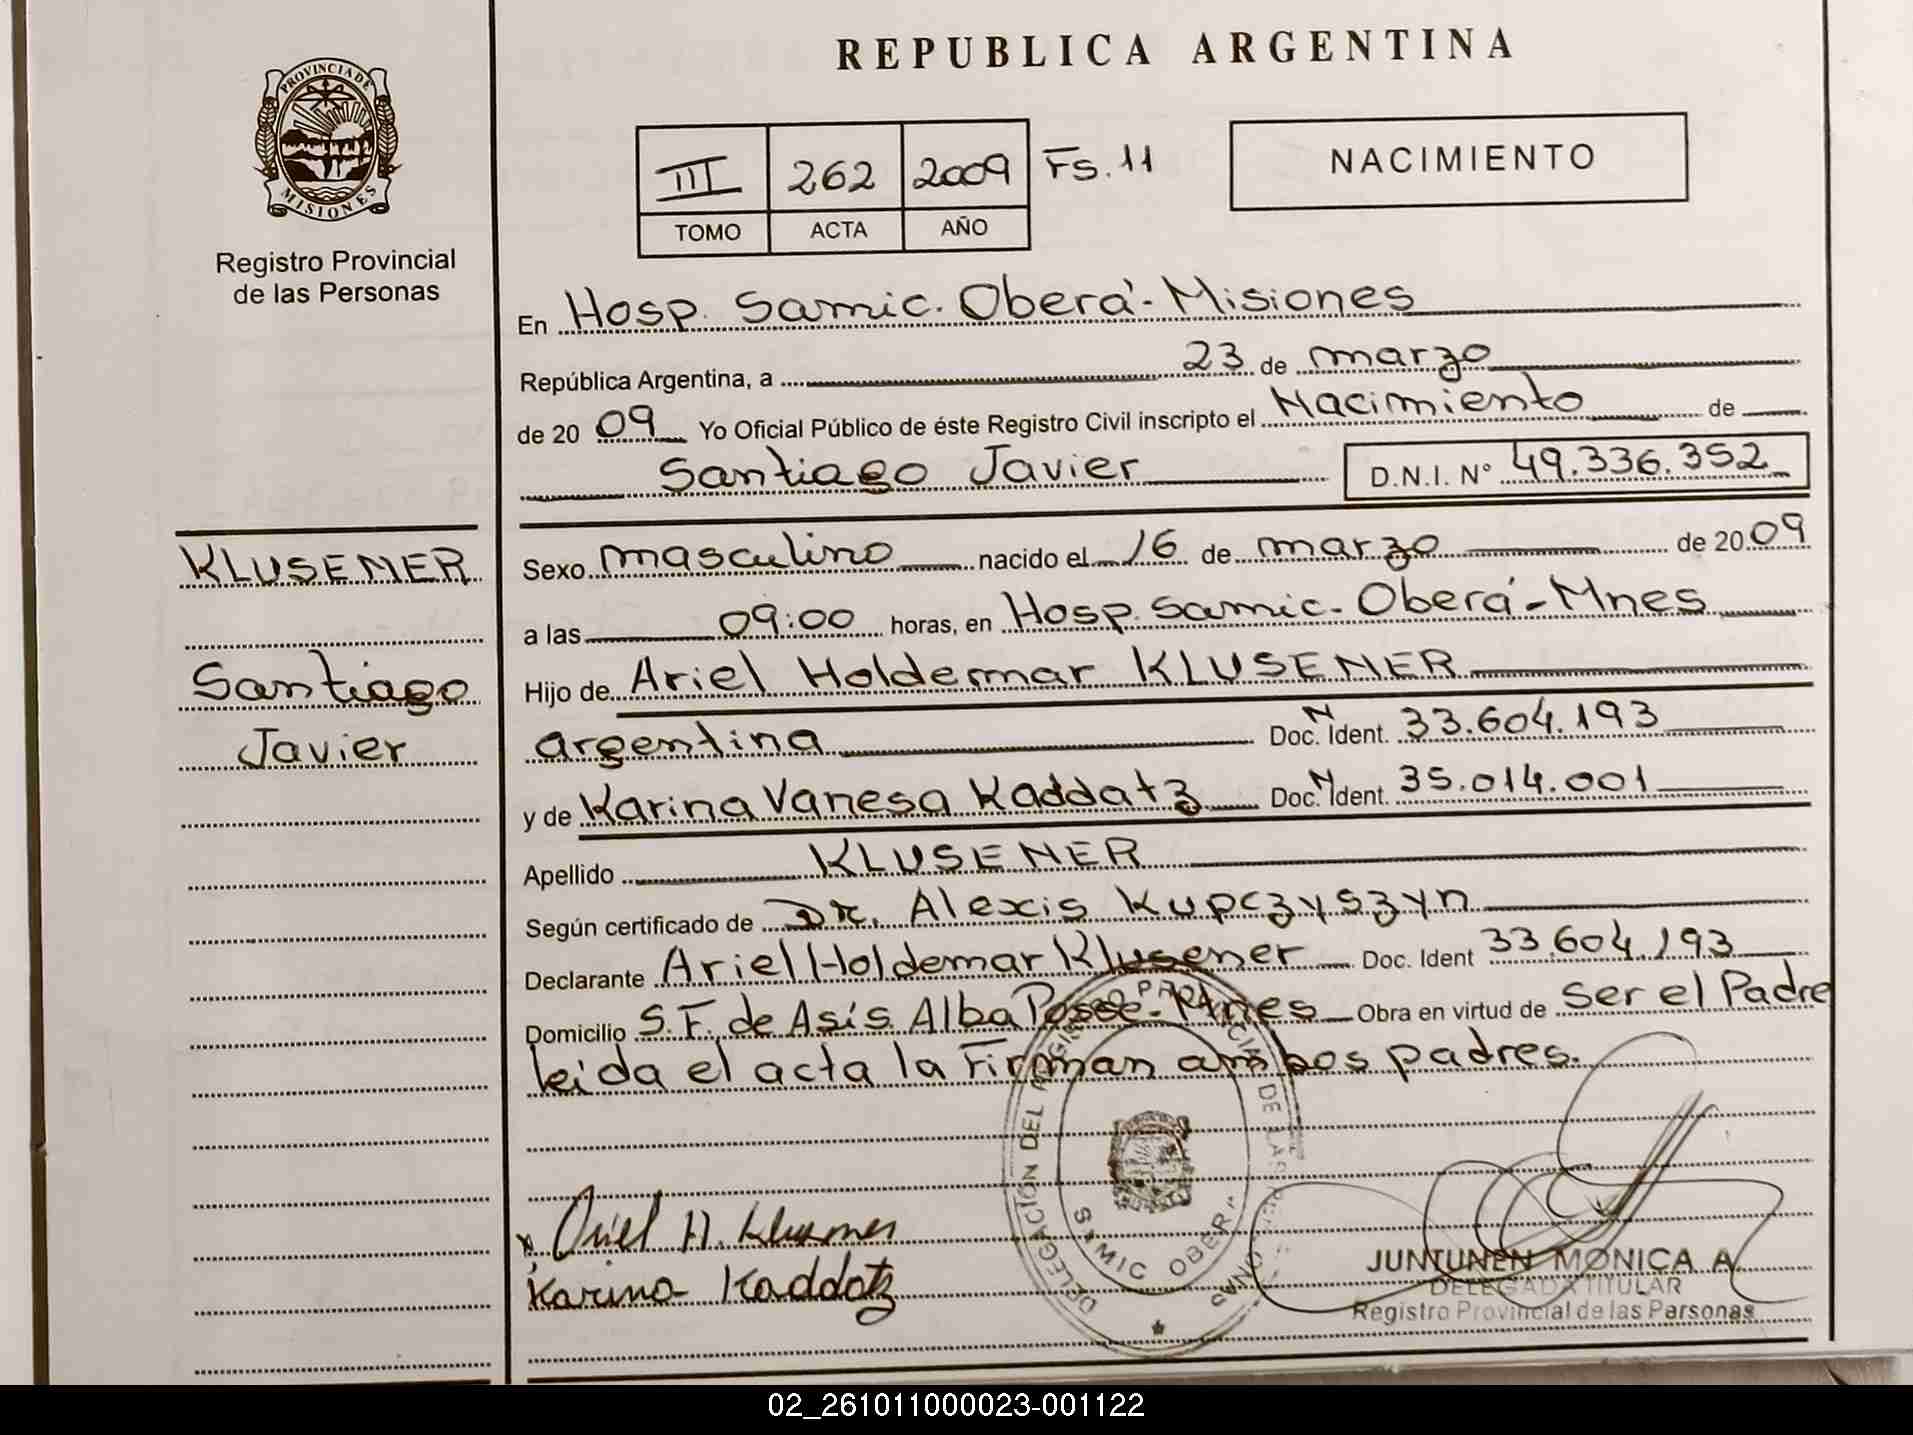 REPUBLICA ARGENTINA
PROVINCIA DE MISIONES
Registro Provincial
de las Personas
III 262 2009 Fs. 11
TOMO ACTA AÑO
NACIMIENTO
En Hosp. Samic. Oberá - Misiones
República Argentina, a 23 de marzo
de 2009 Yo Oficial Público de éste Registro Civil inscripto el Nacimiento de
Santiago Javier D.N.I. N° 49.336.352
KLUSENER
Santiago
Javier
Sexo masculino nacido el 16 de marzo de 2009
a las 09:00 horas, en Hosp. Samic. Oberá - Mnes
Hijo de Ariel Holdemar KLUSENER
argentina Doc. N Ident. 33.604.193
y de Karina Vanesa Kaddatz Doc. N Ident. 35.014.001
Apellido KLUSENER
Según certificado de Dr. Alexis Kupczyszyn
Declarante Ariel Holdemar Klusener Doc. Ident 33.604.193
Domicilio S.F. de Asís. Alba Posse - Mnes Obra en virtud de ser el Padre
leida el acta la firman ambos padres.
DELEGACIÓN DEL REGISTRO PROVINCIAL DE LAS PERSONAS
SAMIC OBERA
Ariel H. Klusener
Karina Kaddatz
JUNTUNEN MONICA A.
DELEGADA TITULAR
Registro Provincial de las Personas
02_261011000023-001122